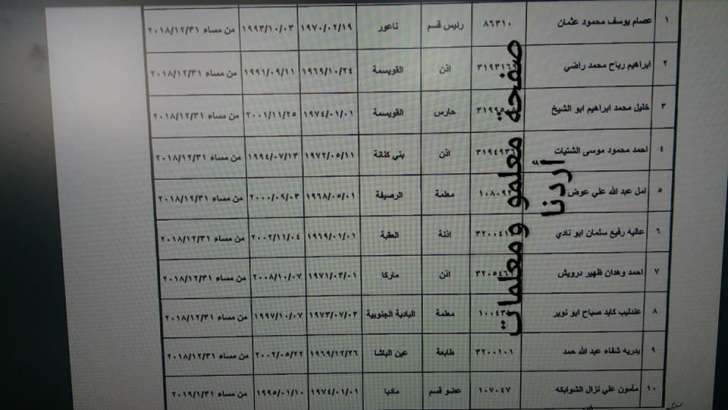 ١ عصام يوسف محمود عثمان ٨٦٣١٠ رئيس قسم ناعور ١٩٧٠/٠٢/١٩ ١٩٩٣/١٠/٠٣ من مساء ٢٠١٨/١٢/٣١
٢ ابراهيم رباح محمد راضي ٣١٩٣١٦ اذن القويسمة ١٩٦٩/١٠/٢٤ ١٩٩١/٠٩/١١ من مساء ٢٠١٨/١٢/٣١
٣ خليل محمد ابراهيم ابو الشيخ حارس القويسمة ١٩٧٤/٠١/٠١ ٢٠٠١/١١/٢٥ من مساء ٢٠١٨/١٢/٣١
٤ احمد محمود موسى الشتيات اذن بني كنانة ١٩٧٢/٠٥/١١ ١٩٩٤/٠٧/١٣ من مساء ٢٠١٨/١٢/٣١
٥ امل عبد الله علي عوض معلمة الرصيفة ١٩٦٨/٠٥/٠١ ٢٠٠٠/٠٩/٠٣ من مساء ٢٠١٨/١٢/٣١
٦ عاليه رفيع سلمان ابو نادي اذنة العقبة ١٩٦٩/٠١/٠١ ٢٠٠٢/١١/٠٤ من مساء ٢٠١٨/١٢/٣١
٧ احمد وهدان ظهير درويش اذن ماركا ١٩٧١/٠٣/٠١ ٢٠٠٨/١٠/٠٧ من مساء ٢٠١٨/١٢/٣١
٨ عندليب كايد صباح ابو نوير معلمة البادية الجنوبية ١٩٧٣/٠٧/٠٣ ١٩٩٧/١٠/٠٧ من مساء ٢٠١٨/١٢/٣١
٩ بدريه شفاء عبد الله حمد ٣٢٠٠١٠١ طابعة عين الباشا ١٩٦٩/١٢/٢٦ ٢٠٠٢/٠٥/٢٢ من مساء ٢٠١٨/١٢/٣١
١٠ مأمون علي نزال الشوابكه ١٠٧٠٤٧ عضو قسم مادبا ١٩٧٤/٠١/٠١ ١٩٩٥/٠١/١٠ من مساء ٢٠١٩/١/٣١
صفحة معلمو ومعلمات
أردنا